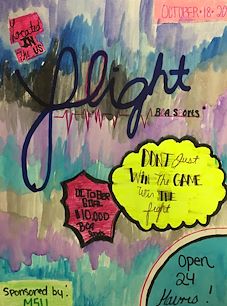 Located
IN
THE US
OCTOBER·18·20
Flight
BOA Scores
DON'T Just
WIN the GAME
Win THE
fight
OCTOBER
GOAL
$10,000
BOA
Open
24
Hours!
Sponsored by:
MSU